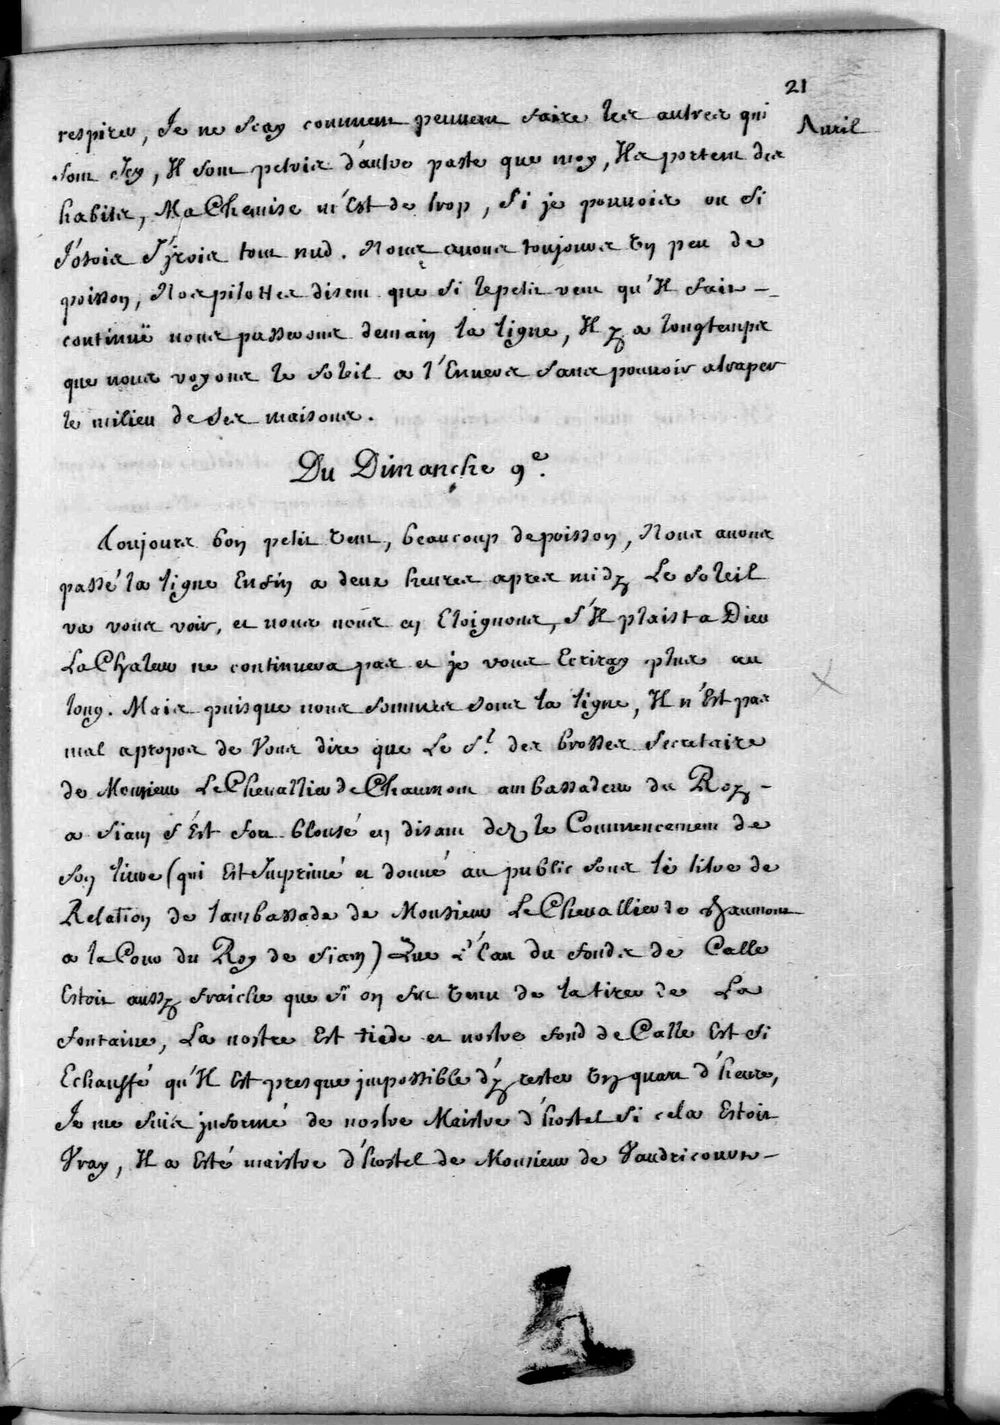 21
Avril
respirer, Je ne scay comment peuvent faire les autres qui
sont Icy, Il sont petris d'autre paste que moy, Ils portent des
habits, Ma Chemise m'Est de trop, Si je pouvois ou si
J'osois J'jrois tout nud. Nous avons toujours Un peu de
poisson, Nos pilottes disent que si le petit vent qu'Il fait
continuë nous passerons demain la ligne, Il y a longtemps
que nous voyons le soleil a l'Envers sans pouvoir atraper
le milieu de ses maisons.
Du Dimanche 9e.
Toujours bon petit Vent, beaucoup de poisson, Nous avons
passé la ligne Enfin a deux heures apres midy Le Soleil
va vous voir, et nous nous en Eloignons, S'Il plaist a Dieu
La Chaleur ne continuera pas et je vous Ecriray plus au
long. Mais puisque nous sommes sous la ligne, Il n'Est pas
mal apropos de Vous dire que Le Sr. des brosses Secretaire
de Monsieur Le Chevallier de Chaumont ambassadeur du Roy
a siam s'Est fort blousé en disant dez le Commencement de
son livre (qui Est Imprimé et donné au public sous le titre de
Relation de lambassade de Monsieur Le Chevallier de Chaumont
a la Cour du Roy de siam) Que L'Eau du fonds de Calle
Estoit aussy fraiche que si on fut Venu de la tirer de La
fontaine, La nostre Est tiede et nostre fond de Calle Est si
Echauffé qu'Il Est presque impossible d'y rester Un quart d'heure,
Je me suis jnformé de nostre Maistre d'hostel si cela Estoit
Vray, Il a Esté maistre d'hostel de Monsieur de Vaudricourt